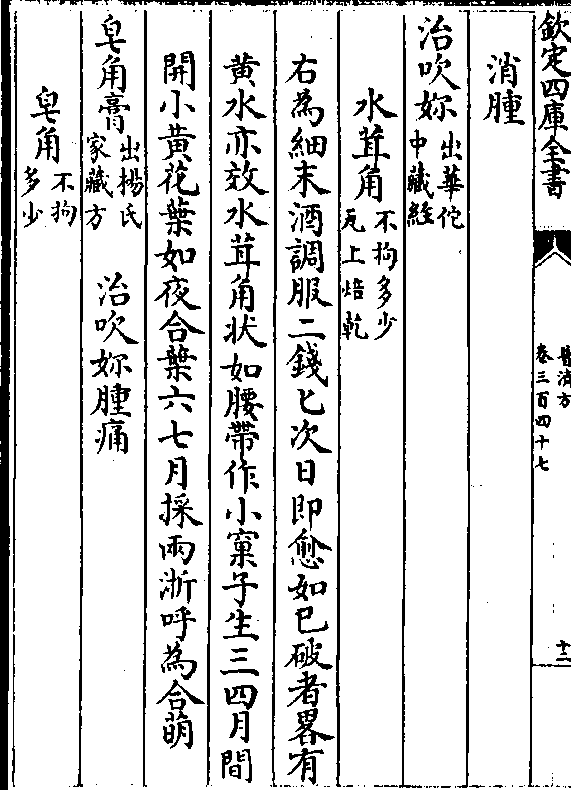 欽定四庫全書
普濟方
卷三百四十七
十二
消腫
治吹妳出華佗中藏經
水茸角不拘多少瓦上焙乾
右為細末酒調服二錢匕次日即愈如已破者畧有
黄水亦效水茸角状如腰帶作小窠子生三四月間
開小黄花葉如夜合葉六七月採兩浙呼為合萌
皂角膏出楊氏家藏方 治吹妳腫痛
皂角不拘多少